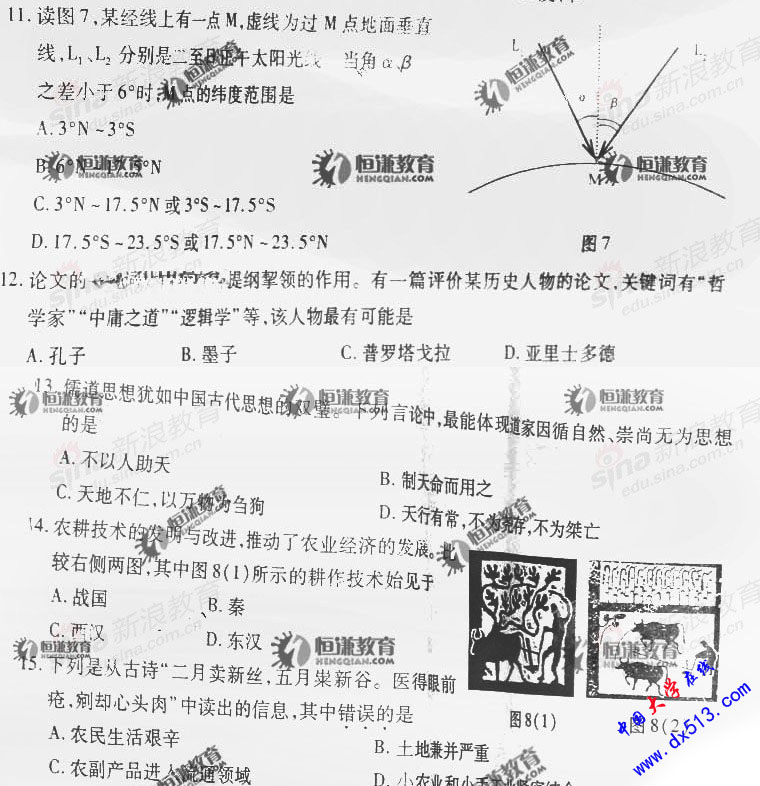 11. 读图7,某经线上有一点M,虚线为过M点地面垂直
线,L₁、L₂ 分别是二至日正午太阳光线 当角α、β
之差小于6°时,M点的纬度范围是
A. 3°N ~ 3°S
B. 6°N ~ 17.5°N
C. 3°N ~ 17.5°N 或 3°S ~ 17.5°S
D. 17.5°S ~ 23.5°S 或 17.5°N ~ 23.5°N
L
L
α
β
M
图7
12. 论文的 提纲挈领的作用。有一篇评价某历史人物的论文,关键词有“哲
学家”“中庸之道”“逻辑学”等,该人物最有可能是
A. 孔子 B. 墨子 C. 普罗塔戈拉 D. 亚里士多德
13. 儒道思想犹如中国古代思想的双璧。下列言论中,最能体现道家因循自然、崇尚无为思想
的是
A. 不以人助天 B. 制天命而用之
C. 天地不仁,以万物为刍狗 D. 天行有常,不为尧存,不为桀亡
14. 农耕技术的发明与改进,推动了农业经济的发展。比
较右侧两图,其中图8(1)所示的耕作技术始见于
A. 战国 B. 秦
C. 西汉 D. 东汉
图8(1) 图8(2)
15. 下列是从古诗“二月卖新丝,五月粜新谷。医得眼前
疮,剜却心头肉”中读出的信息,其中错误的是
A. 农民生活艰辛 B. 土地兼并严重
C. 农副产品进入流通领域 D. 小农业和小手工业
恒谦教育
HENGQIAN.COM
sina新浪教育
edu.sina.com.cn
中国大学在线
www.dx513.com